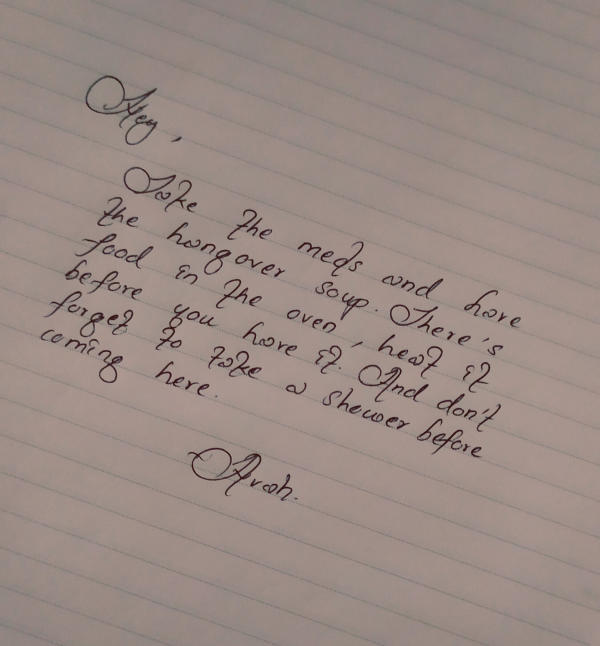 Hey,
Take the meds and have
the hangover soup. There's
food in the oven, heat it
before you have it. And don't
forget to take a shower before
coming here.
Arah.